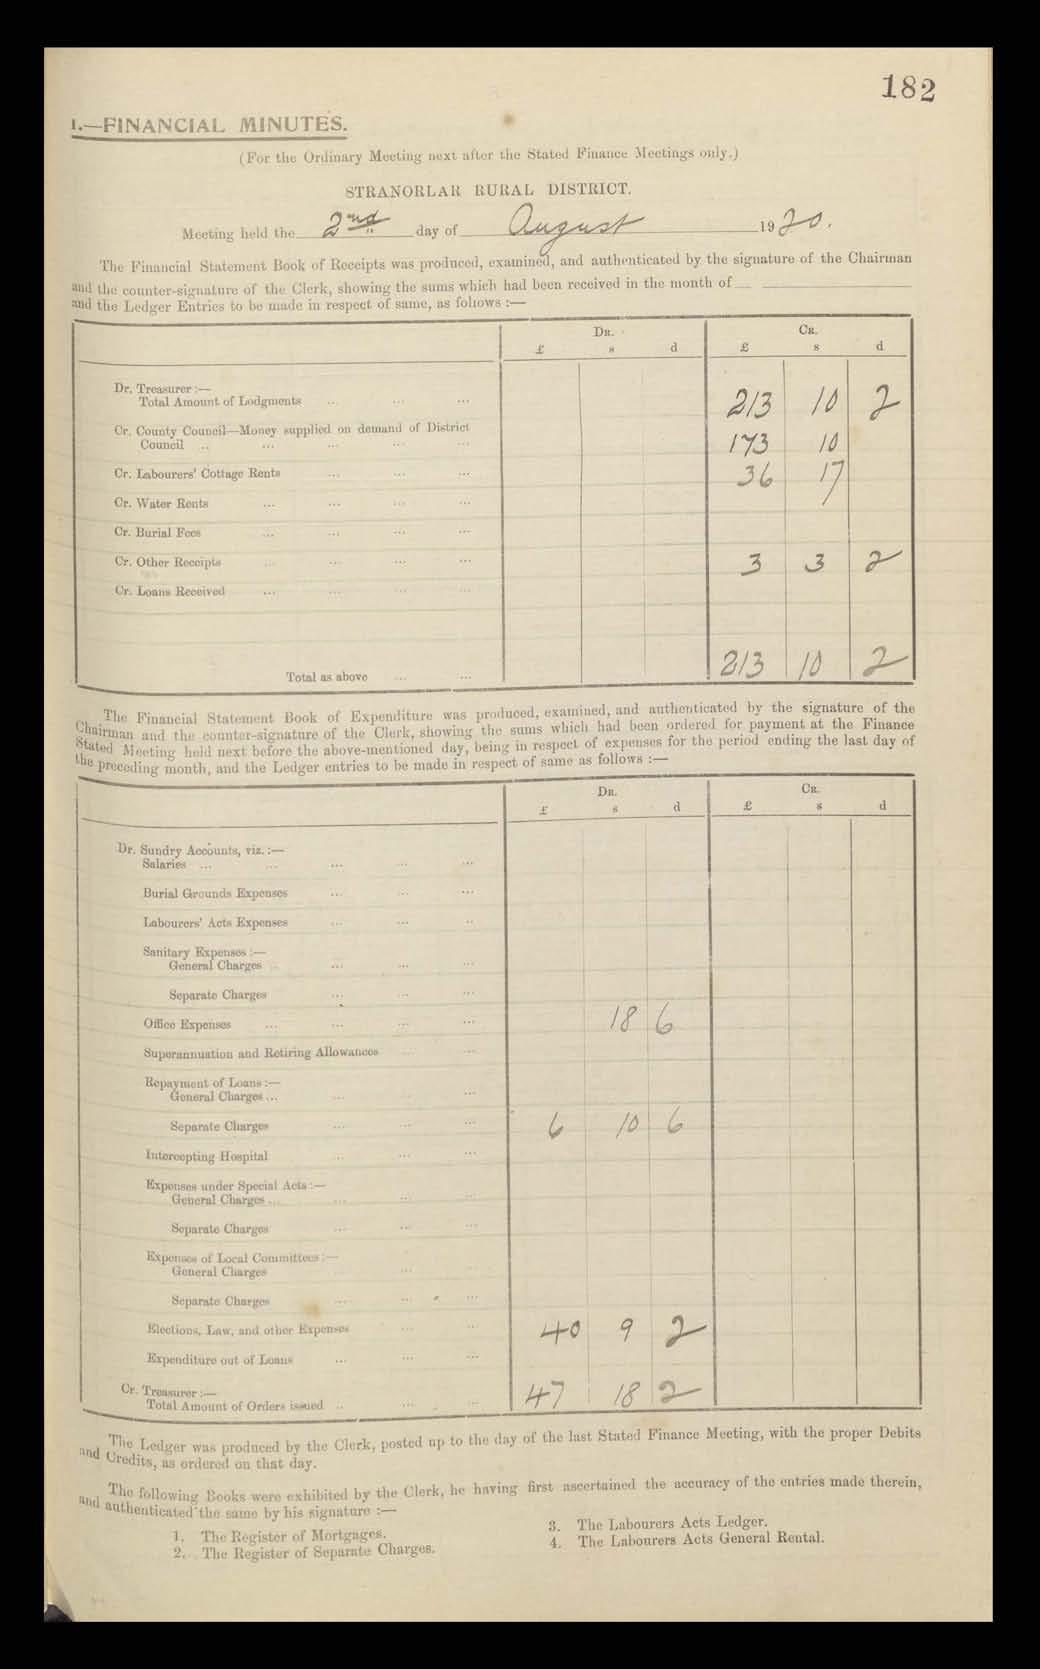 182
1.—FINANCIAL MINUTES.
(For the Ordinary Meeting next after the Stated Finance Meetings only.)
STRANORLAR RURAL DISTRICT.
Meeting held the 2nd day of August 1920.
The Financial Statement Book of Receipts was produced, examined, and authenticated by the signature of the Chairman
and the counter-signature of the Clerk, showing the sums which had been received in the month of
and the Ledger Entries to be made in respect of same, as follows :—
Dr. Cr.
£ s d £ s d
Dr. Treasurer :—
Total Amount of Lodgments ... ... ... 213 10 2
Cr. County Council—Money supplied on demand of District
Council ... ... ... ... ... 173 10
Cr. Labourers' Cottage Rents ... ... ... 36 17
Cr. Water Rents ... ... ... ...
Cr. Burial Fees ... ... ... ...
Cr. Other Receipts ... ... ... ... 3 3 2
Cr. Loans Received ... ... ... ...
Total as above ... ... 213 10 2
The Financial Statement Book of Expenditure was produced, examined, and authenticated by the signature of the
Chairman and the counter-signature of the Clerk, showing the sums which had been ordered for payment at the Finance
Stated Meeting held next before the above-mentioned day, being in respect of expenses for the period ending the last day of
the preceding month, and the Ledger entries to be made in respect of same as follows :—
Dr. Cr.
£ s d £ s d
Dr. Sundry Accounts, viz. :—
Salaries ... ... ... ... ...
Burial Grounds Expenses ... ... ...
Labourers' Acts Expenses ... ... ..
Sanitary Expenses :—
General Charges ... ... ... ...
Separate Charges ... ... ...
Office Expenses ... ... ... ... 18 6
Superannuation and Retiring Allowances ... ...
Repayment of Loans :—
General Charges ... ... ...
Separate Charges ... ... ... 6 10 6
Intercepting Hospital ... ... ...
Expenses under Special Acts :—
General Charges ... ... ... ...
Separate Charges ... ... ...
Expenses of Local Committees :—
General Charges ...
Separate Charges ... ... ...
Elections, Law, and other Expenses ... ... 40 9 2
Expenditure out of Loans ... ... ...
Cr. Treasurer :—
Total Amount of Orders issued .. ... ... 47 18 2
The Ledger was produced by the Clerk, posted up to the day of the last Stated Finance Meeting, with the proper Debits
and Credits, as ordered on that day.
The following Books were exhibited by the Clerk, he having first ascertained the accuracy of the entries made therein,
and authenticated the same by his signature :—
1. The Register of Mortgages.
2. The Register of Separate Charges.
3. The Labourers Acts Ledger.
4. The Labourers Acts General Rental.